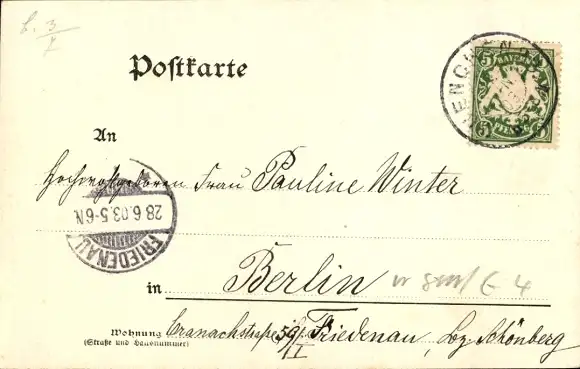 Postkarte
5 BAYERN 5
PFENNIG
An
Hochwohlgeboren Frau Pauline Winter
28.6.03.5-6N.
FRIEDENAU
in Berlin
Wohnung Cranachstraße 59 Friedenau, bz. Schönberg
(Straße und Hausnummer)
II